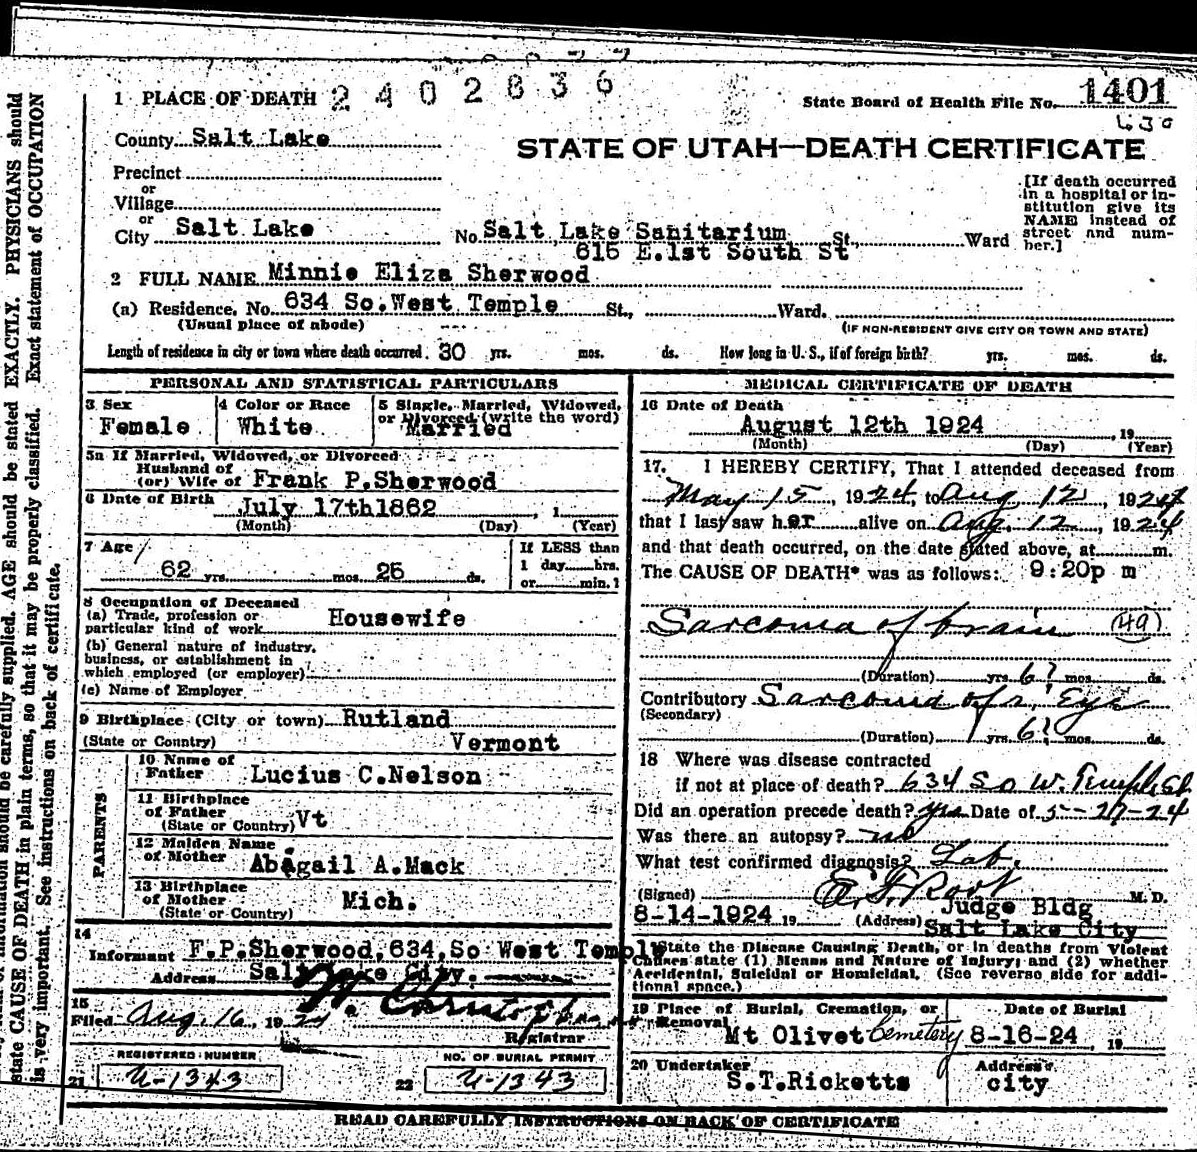 1 PLACE OF DEATH 2402836
State Board of Health File No. 1401
630
County Salt Lake
STATE OF UTAH—DEATH CERTIFICATE
Precinct
or
Village
or
City Salt Lake
No. Salt Lake Sanitarium St., Ward
615 E.1st South St
[If death occurred
in a hospital or in-
stitution give its
NAME instead of
street and num-
ber.]
2 FULL NAME Minnie Eliza Sherwood
(a) Residence, No. 634 So.West Temple St., Ward.
(Usual place of abode)
(IF NON-RESIDENT GIVE CITY OR TOWN AND STATE)
Length of residence in city or town where death occurred. 30 yrs. mos. ds. How long in U. S., if of foreign birth? yrs. mos. ds.
PERSONAL AND STATISTICAL PARTICULARS
3 Sex
Female
4 Color or Race
White
5 Single, Married, Widowed,
or Divorced (write the word)
Married
5a If Married, Widowed, or Divorced
Husband of
(or) Wife of Frank P.Sherwood
6 Date of Birth July 17th1862, 1
(Month) (Day) (Year)
7 Age
62 yrs. mos. 25 ds.
If LESS than
1 day hrs.
or min.?
8 Occupation of Deceased
(a) Trade, profession or
particular kind of work Housewife
(b) General nature of industry,
business, or establishment in
which employed (or employer)
(c) Name of Employer
9 Birthplace (City or town) Rutland
(State or Country) Vermont
PARENTS
10 Name of
Father Lucius C.Nelson
11 Birthplace
of Father
(State or Country) Vt
12 Maiden Name
of Mother Abagail A.Mack
13 Birthplace
of Mother
(State or Country) Mich.
14
Informant F.P.Sherwood, 634, So West Temple
Address Salt Lake City.
15
Filed Aug. 16, 1924
Registrar
REGISTERED NUMBER
21 U-1343
NO. OF BURIAL PERMIT
22 U-1343
MEDICAL CERTIFICATE OF DEATH
16 Date of Death
August 12th 1924, 19
(Month) (Day) (Year)
17. I HEREBY CERTIFY, That I attended deceased from
May 15, 1924, to Aug 12, 1924
that I last saw her alive on Aug. 12, 1924
and that death occurred, on the date stated above, at m.
The CAUSE OF DEATH* was as follows: 9:20p m
Sarcoma of brain (49)
(Duration) yrs. 6? mos. ds.
Contributory Sarcoma of r. Eye
(Secondary)
(Duration) yrs. 6? mos. ds.
18 Where was disease contracted
if not at place of death? 634 So W. Temple St
Did an operation precede death? yes Date of 5-27-24
Was there an autopsy? no
What test confirmed diagnosis? Lab.
(Signed) E. F. Root M. D.
8-14-1924 19 (Address) Judge Bldg
Salt Lake City
*State the Disease Causing Death, or in deaths from Violent
Causes state (1) Means and Nature of Injury; and (2) whether
Accidental, Suicidal or Homicidal. (See reverse side for addi-
tional space.)
19 Place of Burial, Cremation, or
Removal
Mt Olivet Cemetery
Date of Burial
8-16-24, 19
20 Undertaker
S.T.Ricketts
Address
city
READ CAREFULLY INSTRUCTIONS ON BACK OF CERTIFICATE
should be carefully supplied. AGE should be stated EXACTLY. PHYSICIANS should
state CAUSE OF DEATH in plain terms, so that it may be properly classified. Exact statement of OCCUPATION
is very important. See instructions on back of certificate.